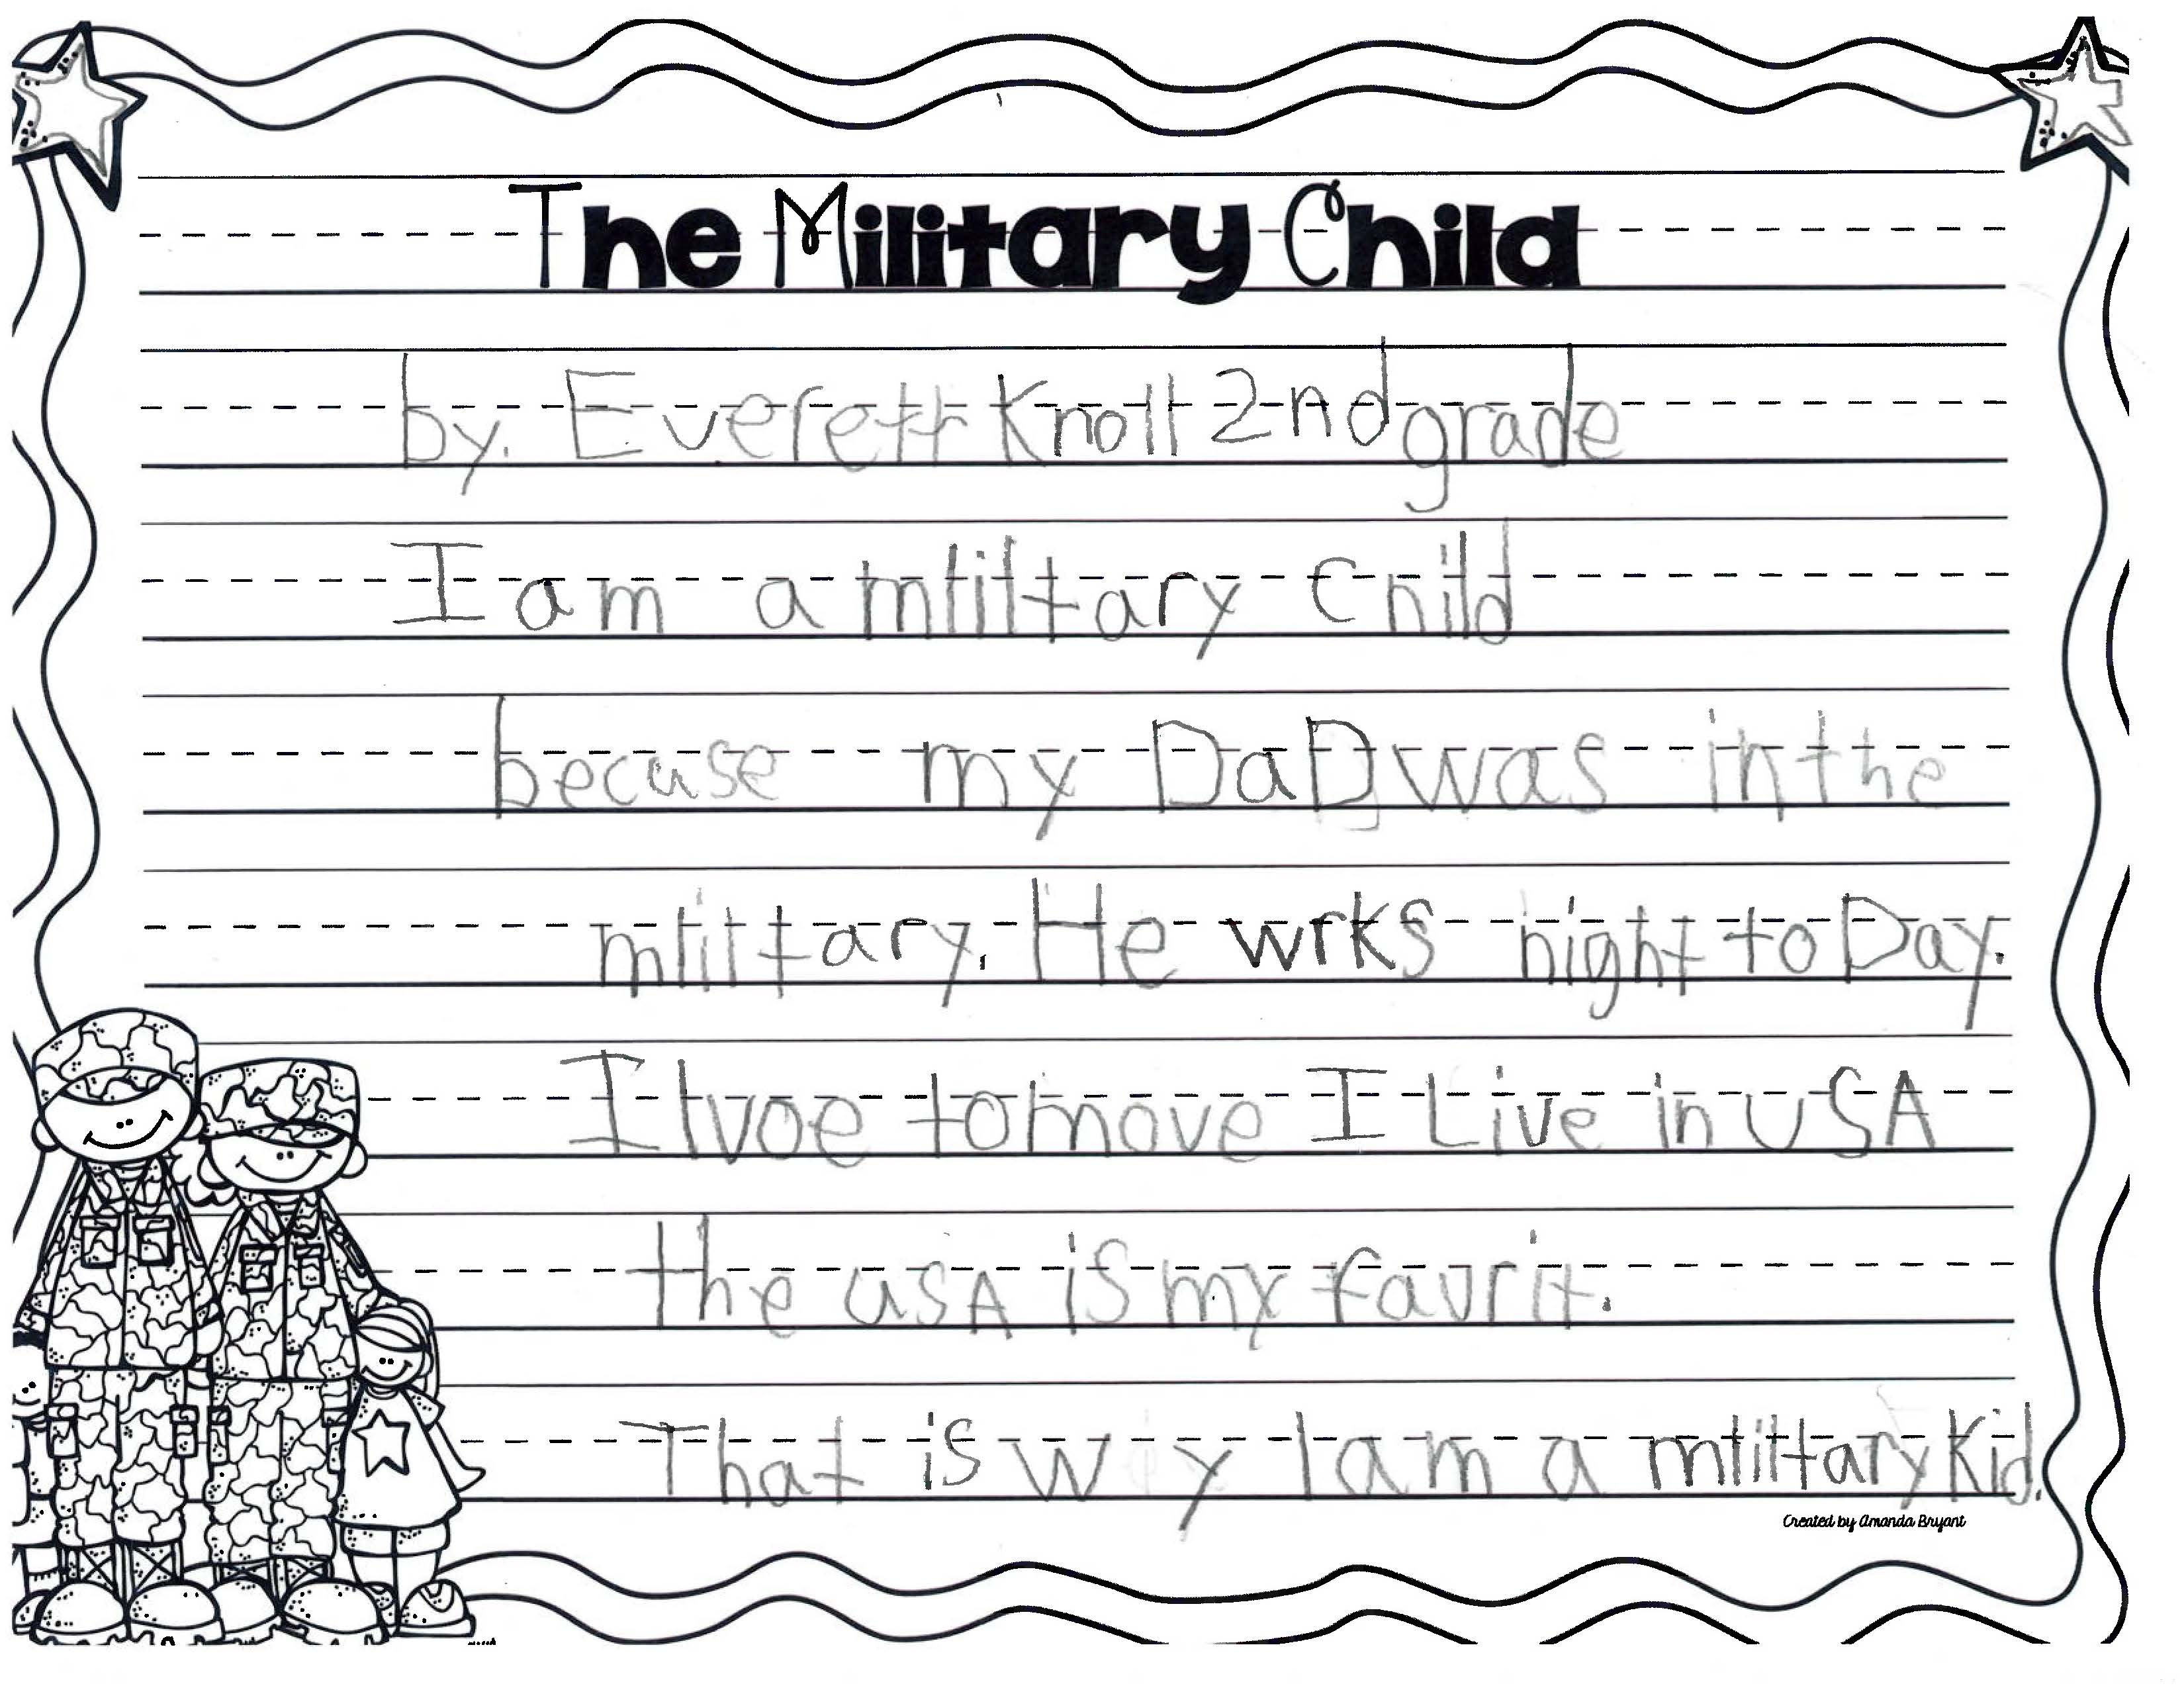 The Military Child
by. Everett Knott 2nd grade
I am a mlilitary child
becuse my DaD was in the
mlilitary. He wrks night to Day.
I lvoe to move I Live in USA
the USA is my favrit.
That is wy I am a mlilitary Kid.
Created by Amanda Bryant